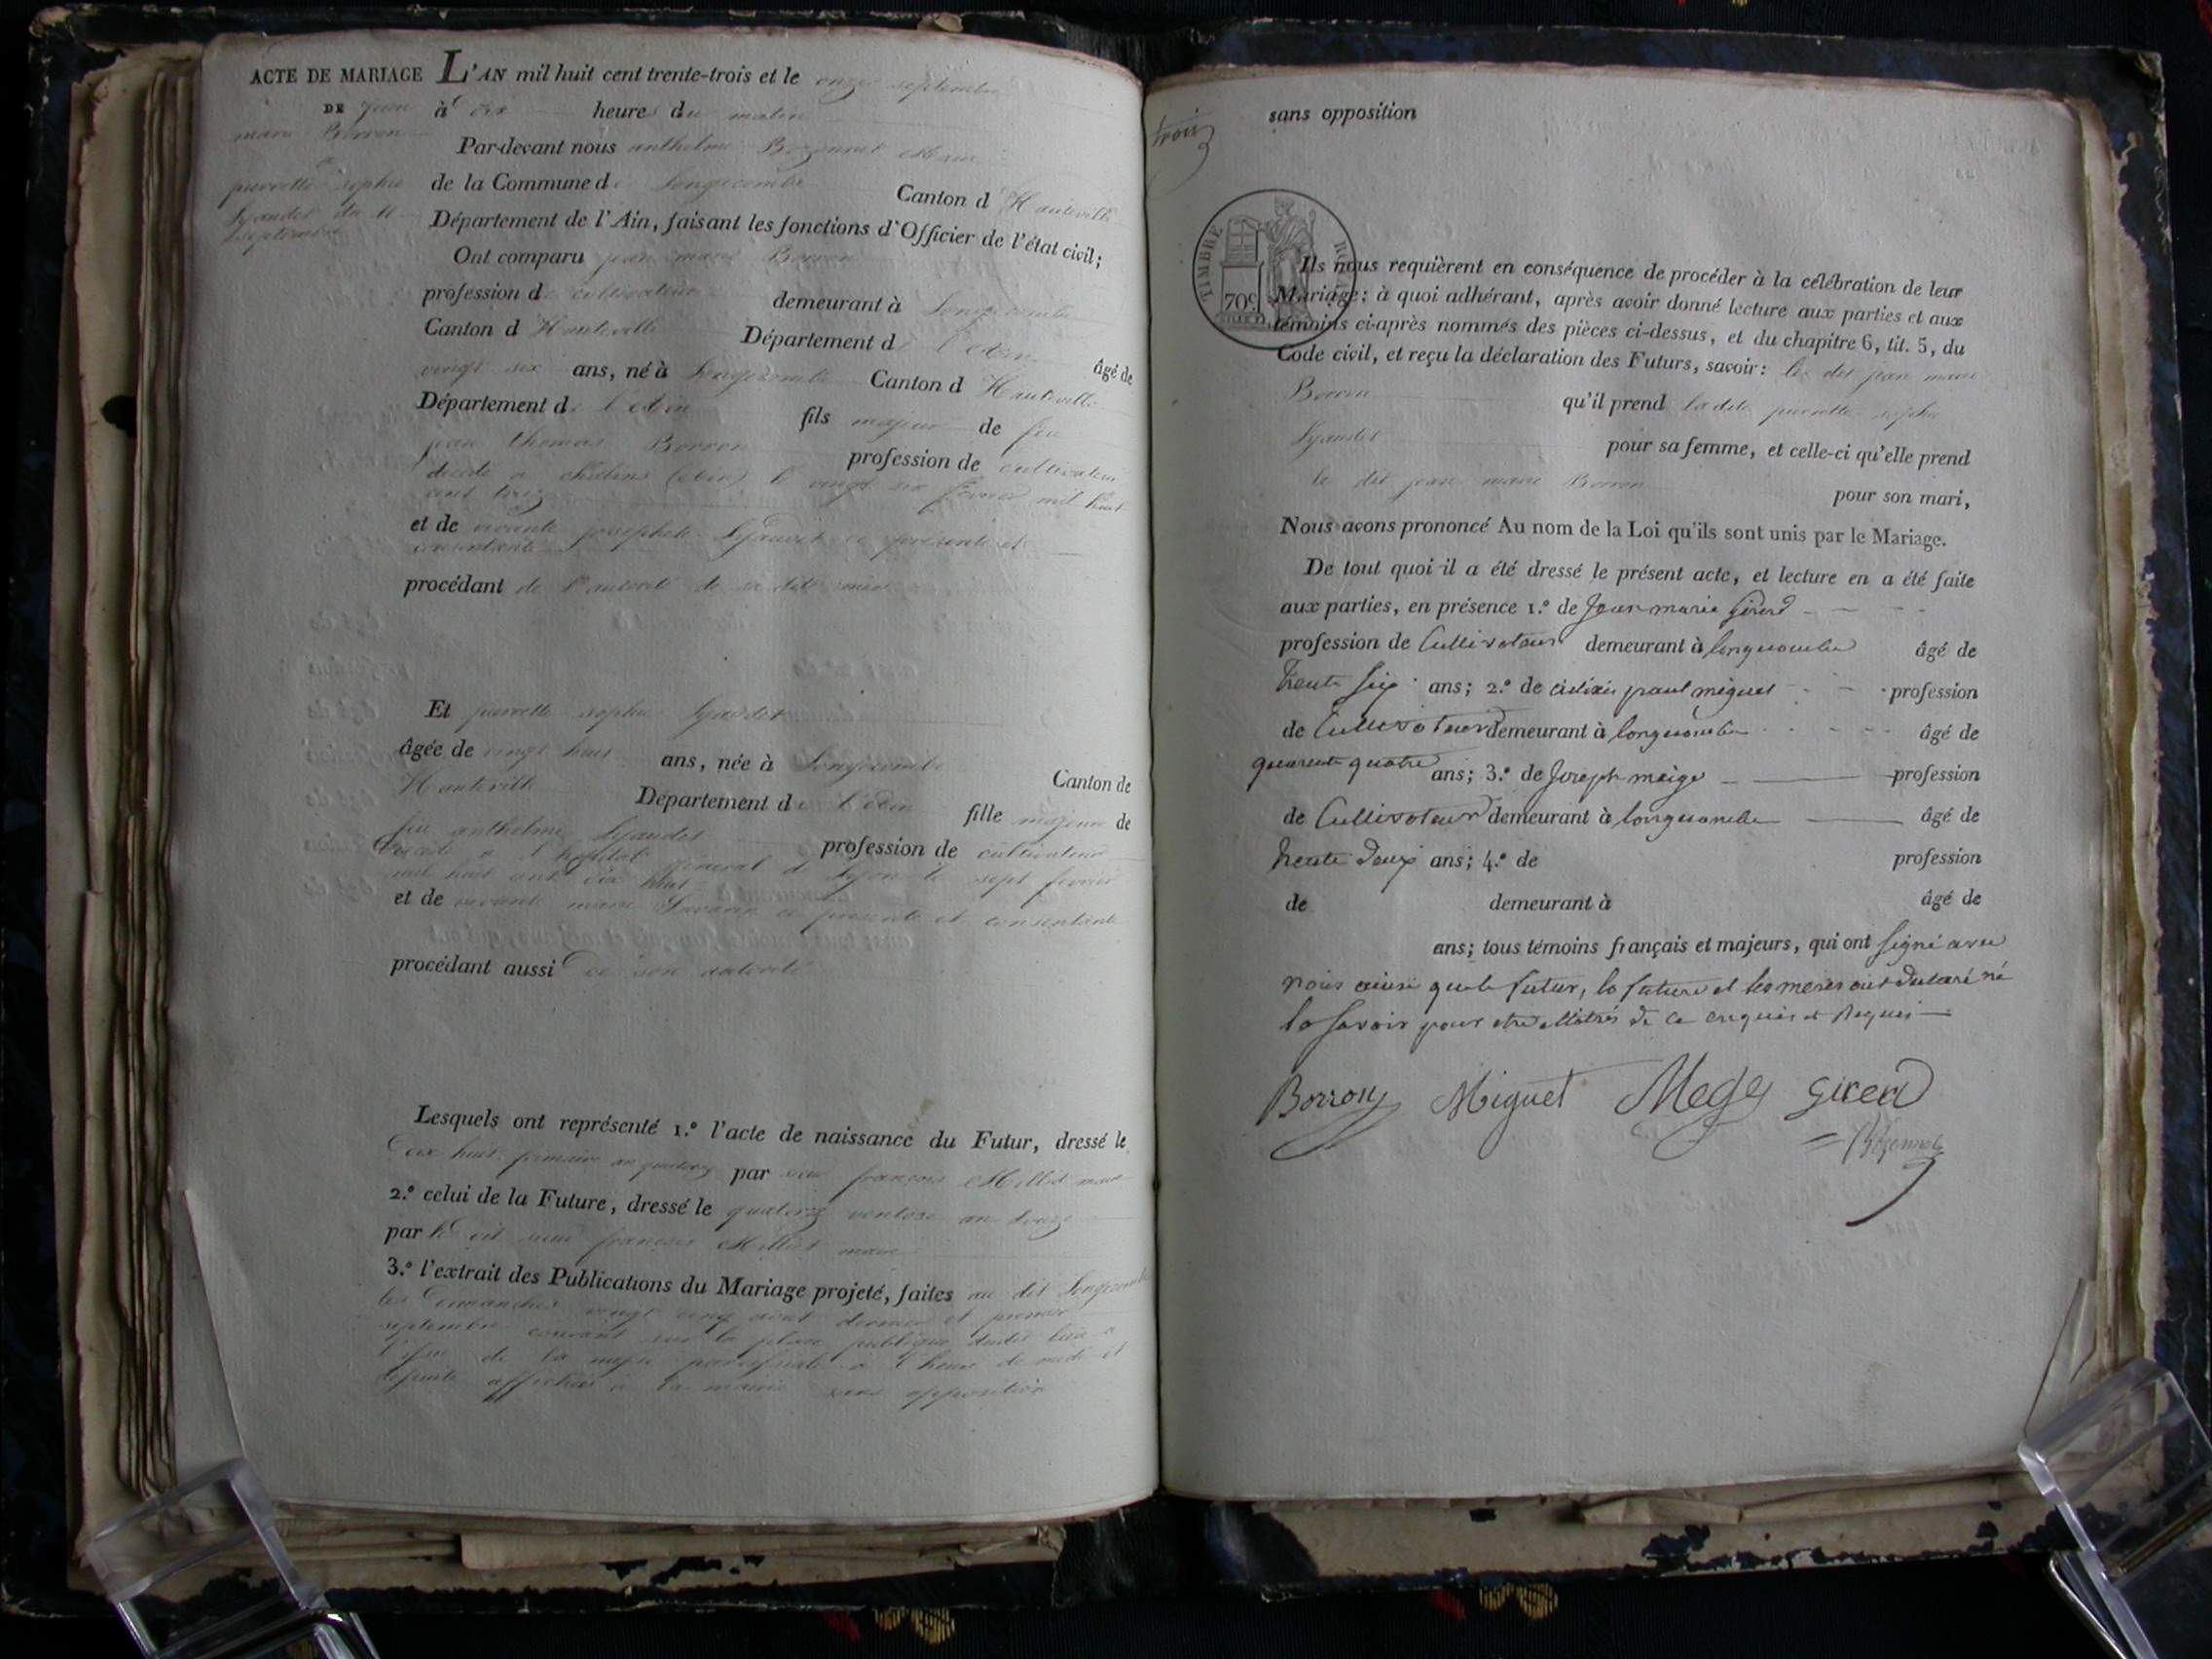 ACTE DE MARIAGE L'AN mil huit cent trente-trois et le onze septembre
DE jean à dix heures du matin
marie Borron
Par-devant nous anthelme Bozonnet Maire
pierrette sophie de la Commune de Longecombe Canton d Hauteville
du 11 Département de l'Ain, faisant les fonctions d'Officier de l'état civil;
septembre
Ont comparu jean marie Borron
profession de cultivateur demeurant à Longecombe
Canton d Hauteville Département de l'Ain âgé de
vingt six ans, né à Longecombe Canton d Hauteville
Département de l'Ain fils majeur de feu
jean thomas Borron profession de cultivateur
décédé a (Ain) le vingt six février mil huit
cent
et de vivante josephete ce presente et
consentante
procédant de l'autorité de sa dite mere
Et pierrette sophie
âgée de vingt huit ans, née à Longecombe Canton de
Hauteville Département de l'Ain fille majeure de
feu anthelme profession de cultivateur
décédé a l'hopital général de Lyon le sept fevrier
mil huit cent dix huit
et de vivante marie Savarin ce presente et consentante
procédant aussi de son autorité
Lesquels ont représenté 1.º l'acte de naissance du Futur, dressé le
dix huit frimaire an quatorze par sieur françois Milliet maire
2.º celui de la Future, dressé le quatorze ventose an
par le dit sieur françois Milliet maire
3.º l'extrait des Publications du Mariage projeté, faites au dit Longecombe
les Dimanches vingt cinq aout dernier et premier
septembre courant sur la place publique dudit lieu a
l'issue de la messe paroissiale a l'heure de midi et
ensuite affichées à la mairie sans opposition
trois
sans opposition
TIMBRE ROYAL
70c
Ils nous requièrent en conséquence de procéder à la célébration de leur
Mariage; à quoi adhérant, après avoir donné lecture aux parties et aux
témoins ci-après nommés des pièces ci-dessus, et du chapitre 6, tit. 5, du
Code civil, et reçu la déclaration des Futurs, savoir: le dit jean marie
Borron qu'il prend ladite pierrette sophie
pour sa femme, et celle-ci qu'elle prend
le dit jean marie Borron pour son mari,
Nous avons prononcé Au nom de la Loi qu'ils sont unis par le Mariage.
De tout quoi il a été dressé le présent acte, et lecture en a été faite
aux parties, en présence 1.º de Jean marie Girerd
profession de Cultivateur demeurant à longecombe âgé de
trente six ans; 2.º de paul miguet profession
de Cultivateur demeurant à longecombe âgé de
quarente quatre ans; 3.º de Joseph meige profession
de Cultivateur demeurant à longecombe âgé de
trente deux ans; 4.º de profession
de demeurant à âgé de
ans; tous témoins français et majeurs, qui ont signé avec
nous ainsi que le futur, la future et les meres ont declaré ne
le savoir pour etre illitrés de ce enquis et Requis
Borron Miguet Mege Girerd
Bozonnet